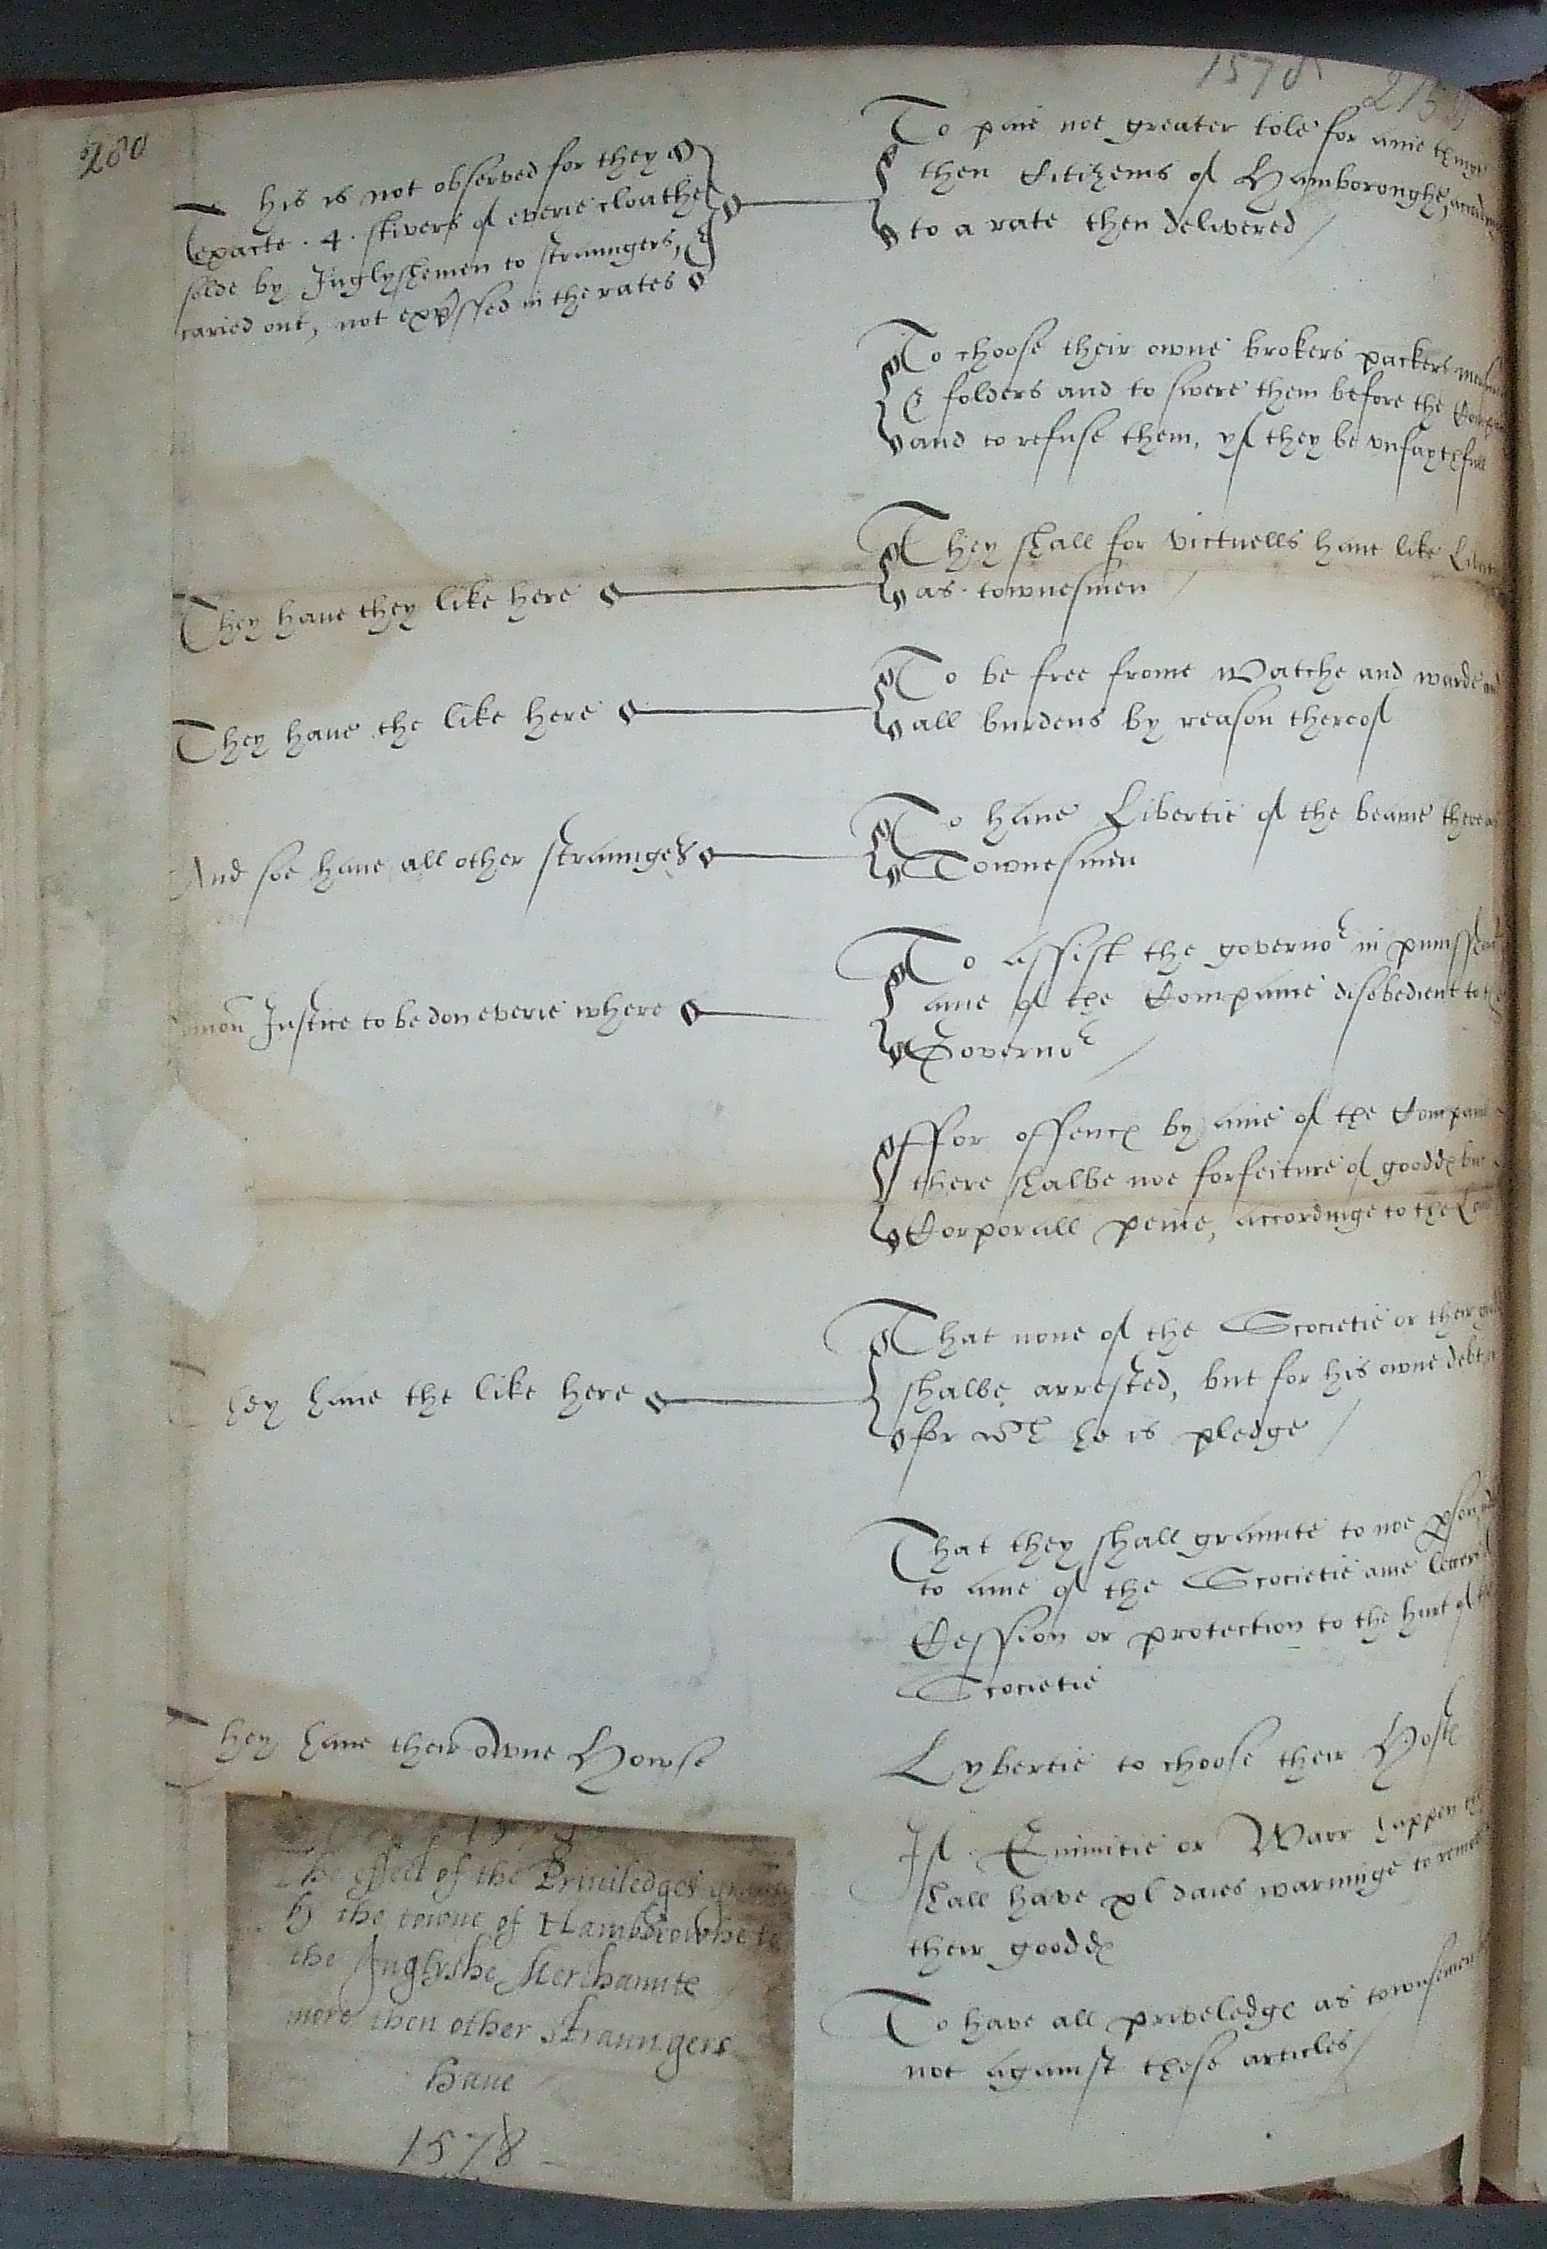 1578
280
This is not observed for they
exacte . 4 . stivers of everie cloathe
solde by Inglyshemen to straungers,
caried out, not expressed in the rates
To paie noe greater tole for anie
then Citizens of Hamboroughe,
to a rate then delivered /
To choose their owne brokers packers
& folders and to swere them before the
and to refuse them, yf they be vnfaythfull
They haue they like here
They shall for victuells haue like
as townesmen /
They haue the like here
To be free frome watche and warde
all burdens by reason thereof
And soe haue all other straungers
To haue Libertie of the beame there as
Townesmen
Justice to be don everie where
To assist the governor in
anie of the Companie disobedient to
Governor /
ffor offence by anie of the Companie
there shalbe noe forfeiture of gooddes but
Corporall peine, accordinge to the
They haue the like here
That none of the Scocietie or their
shalbe arrested, but for his owne debt
for wch he is pledge /
That they shall graunte to noe pson,
to anie of the Scocietie anie letters
Cession or protection to the hurt of the
Scocietie
They haue their owne Howse
Lybertie to choose their Hoste
If Enimitie or Warr happen
shall have xl daies warninge to
their gooddes
To have all priveledges as townsemen
not against these articles /
The effect of the Priuiledges
by the towne of Hambrowhe to
the Inglyshe Merchauntes
more then other straungers
haue
1578